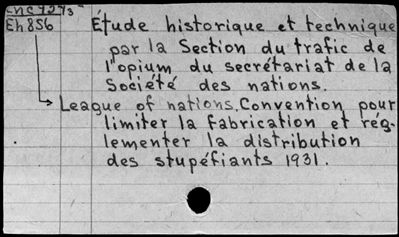 Eh856
Étude historique et technique
par la Section du trafic de
l'opium du secrétariat de la
Société des nations.
League of nations. Convention pour
limiter la fabrication et rég-
lementer la distribution
des stupéfiants 1931.